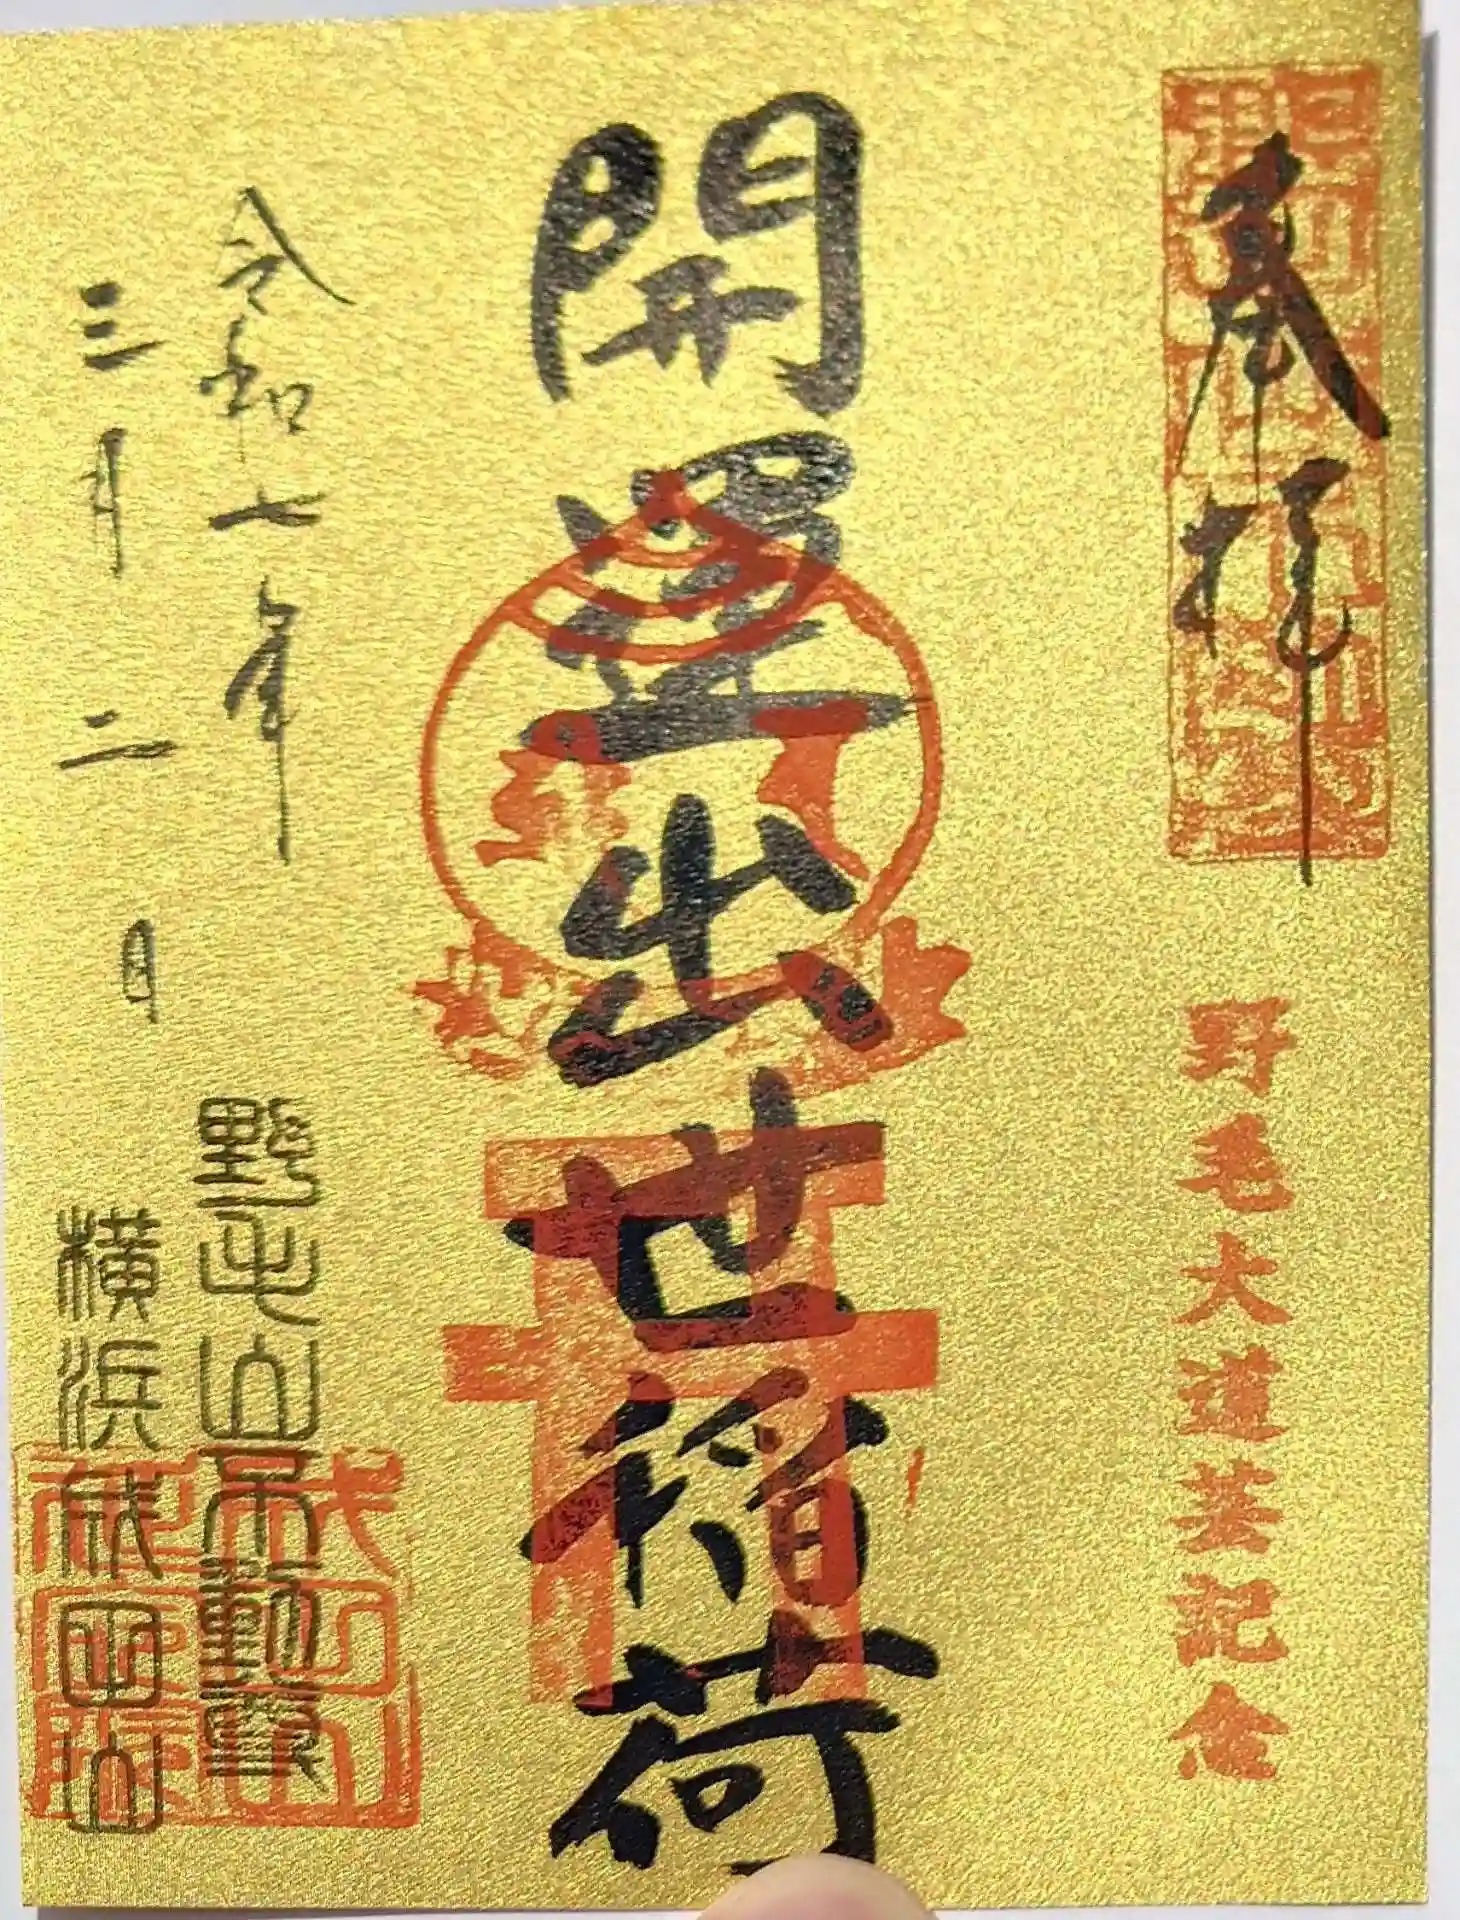 奉拝
野毛大道芸記念
開運出世稲荷
令和七年
三月二日
野毛山不動尊
横浜成田山